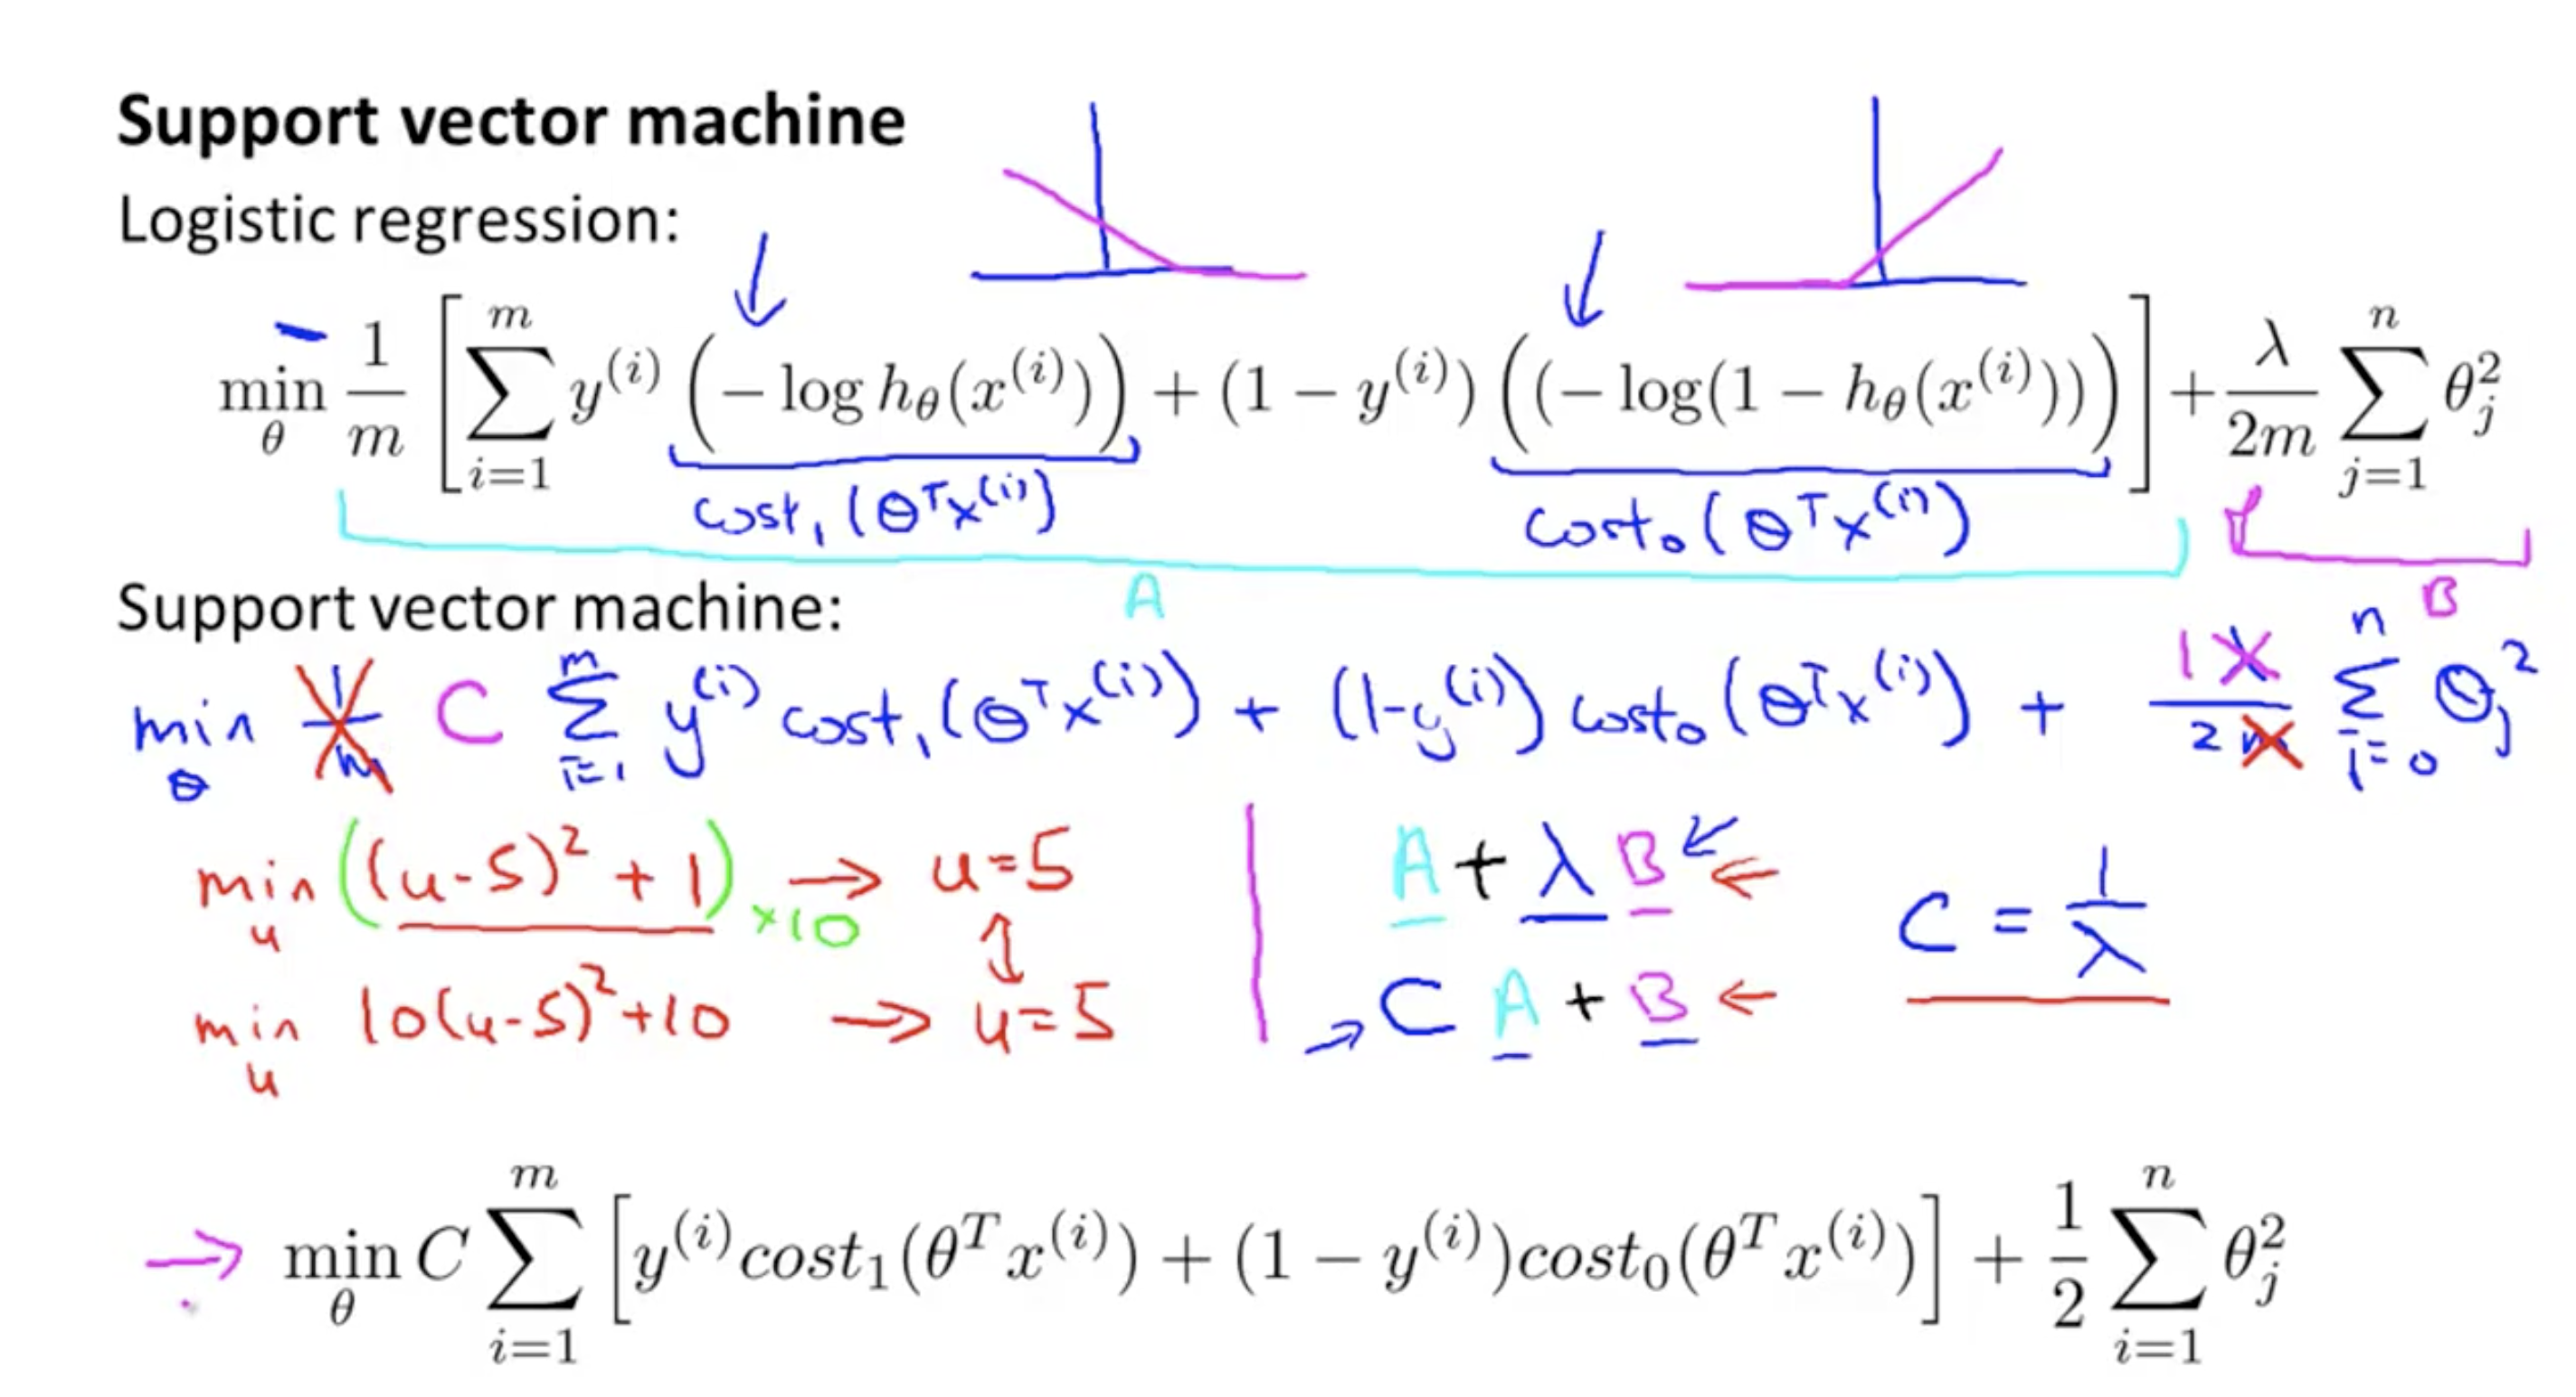 Support vector machine
Logistic regression:
min_θ 1/m [ Σ_{i=1}^{m} y^{(i)} ( − log h_θ(x^{(i)}) ) + (1 − y^{(i)}) ( (− log(1 − h_θ(x^{(i)})) ) ] + λ/2m Σ_{j=1}^{n} θ_j^2
cost_1 (θ^T x^{(i)}) cost_0 (θ^T x^{(i)})
A B
Support vector machine:
min_θ 1/m C Σ_{i=1}^{m} y^{(i)} cost_1 (θ^T x^{(i)}) + (1-y^{(i)}) cost_0 (θ^T x^{(i)}) + 1 λ/2 m Σ_{i=0}^{n} θ_j^2
min_u ((u-5)^2 + 1) ×10 → u=5
↕
min_u 10(u-5)^2 + 10 → u=5
A + λ B ← C = 1/λ
→ C A + B ←
→ min_θ C Σ_{i=1}^{m} [ y^{(i)} cost_1(θ^T x^{(i)}) + (1 − y^{(i)}) cost_0(θ^T x^{(i)}) ] + 1/2 Σ_{i=1}^{n} θ_j^2